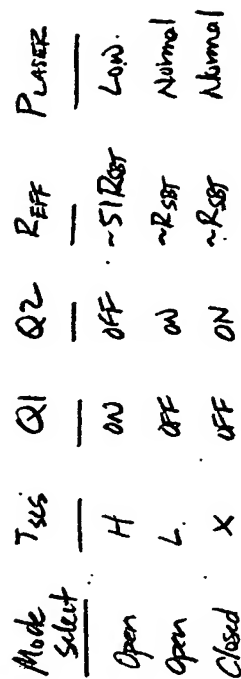 Mode Select T_SLS Q1 Q2 R_EFF P_LASER
Open H ON OFF ~51R_SET LOW.
Open L. OFF ON ~R_SET Normal
Closed X OFF ON ~R_SET Normal